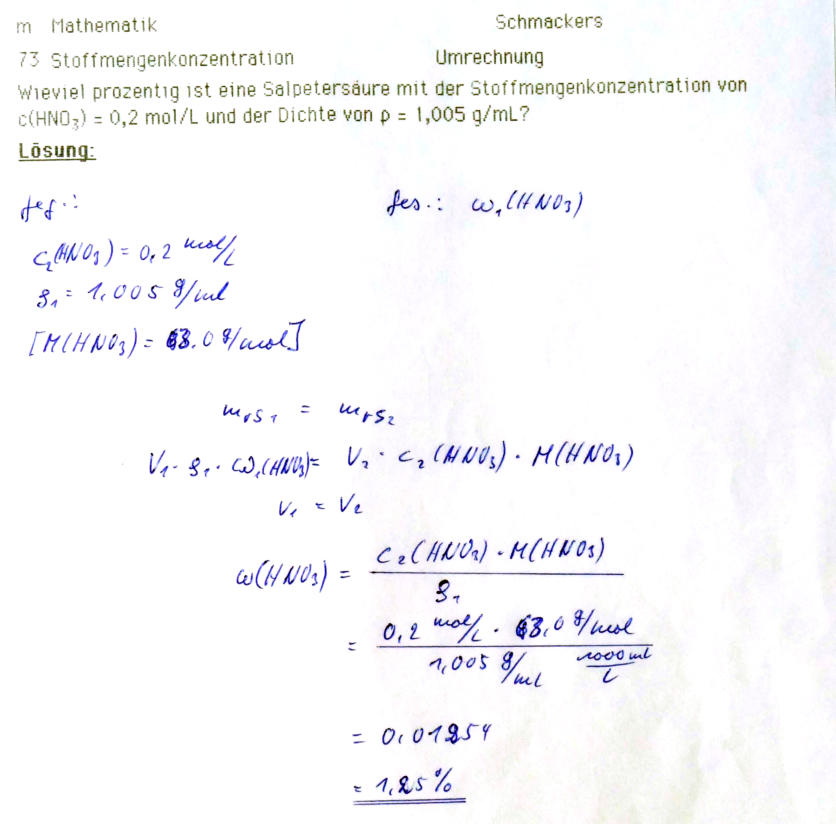 m Mathematik Schmackers
73 Stoffmengenkonzentration Umrechnung
Wieviel prozentig ist eine Salpetersäure mit der Stoffmengenkonzentration von
c(HNO₃) = 0,2 mol/L und der Dichte von ρ = 1,005 g/mL?
Lösung:
geg.: ges.: ω₁(HNO₃)
c₂(HNO₃) = 0,2 mol/L
ρ₁ = 1,005 g/ml
[M(HNO₃) = 63,0 g/mol]
m_rS₁ = m_rS₂
V₁ · ρ₁ · ω₁(HNO₃) = V₂ · c₂(HNO₃) · M(HNO₃)
V₁ = V₂
ω(HNO₃) = c₂(HNO₃) · M(HNO₃)
ρ₁
= 0,2 mol/L · 63,0 g/mol
1,005 g/ml 1000 ml/L
= 0,01254
= 1,25 %